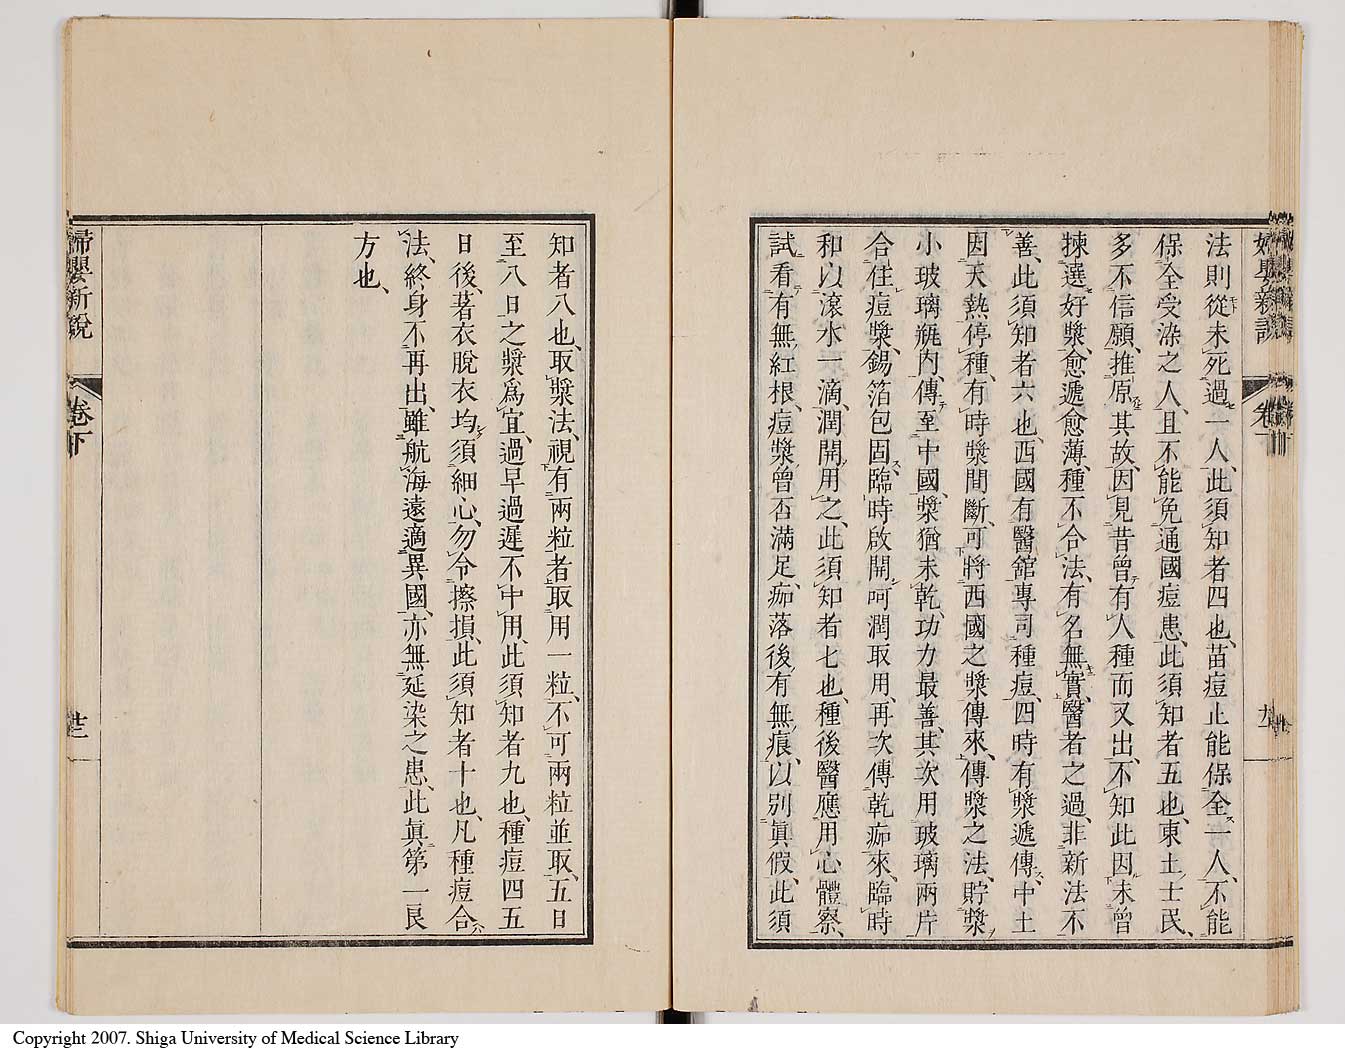 法則從未死過一人、此須知者四也、苗痘止能保全一人、不能
保全受染之人、且不能免通國痘患、此須知者五也、東土士民、
多不信願、推原其故、因見昔曾有人種而又出、不知此因未曾
揀選好漿、愈遞愈薄、種不合法、有名無實、醫者之過、非新法不
善、此須知者六也、西國有醫舘專司種痘、四時有漿遞傳、中土
因天熱停種、有時漿間斷、可將西國之漿傳來、傳漿之法、貯漿
小玻璃瓶內、傳至中國、漿猶未乾、功力最善、其次用玻璃兩片
合住痘漿、錫箔包固、臨時啟開、呵潤取用、再次傳乾痂來、臨時
和以滾水一滴、潤開用之、此須知者七也、種後醫應用心體察、
試看有無紅根、痘漿曾否滿足、痂落後有無痕、以別眞假、此須
知者八也、取漿法、視有兩粒者取用一粒、不可兩粒並取、五日
至八日之漿爲宜、過早過遲不中用、此須知者九也、種痘四五
日後、著衣脫衣均須細心、勿令擦損、此須知者十也、凡種痘合
法、終身不再出、雖航海遠適異國、亦無延染之患、此眞第一良
方也、
婦嬰新說
卷下
Copyright 2007. Shiga University of Medical Science Library